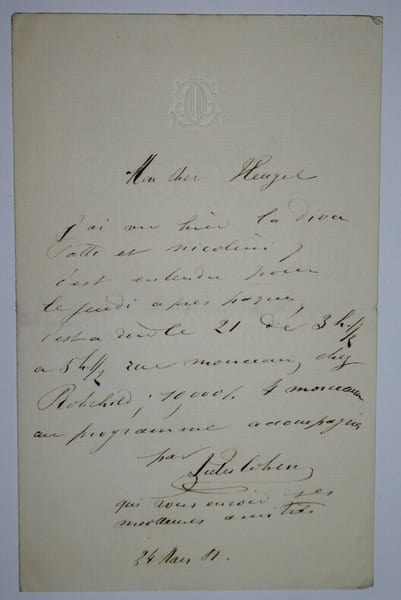 Mon cher Heugel
j'ai vu hier la diva
Patti et Nicolini,
c'est entendu pour
le jeudi après pâques,
c'est a dire le 21 de 3 h 1/2
a 5 h 1/2 rue monceau, chez
Rotschild, 10,000 f. 4 morceaux
au programme accompagnés
par Jules Cohen
qui vous envoie ses
meilleures amitiés
24 Mars 81.